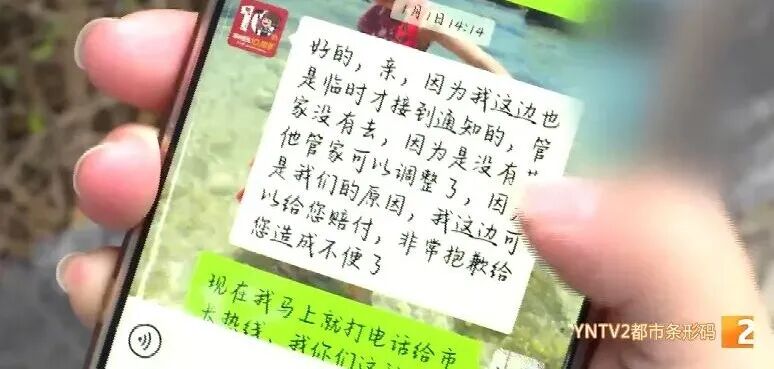 月1日14:14
好的，亲，因为我这边也
是临时才接到通知的，管
家没有去，因为是没有
他管家可以调整了，因
是我们的原因，我这边可
以给您赔付，非常抱歉给
您造成不便了
现在我马上就打电话给市
长热线，我你们这
YNTV2都市条形码 2